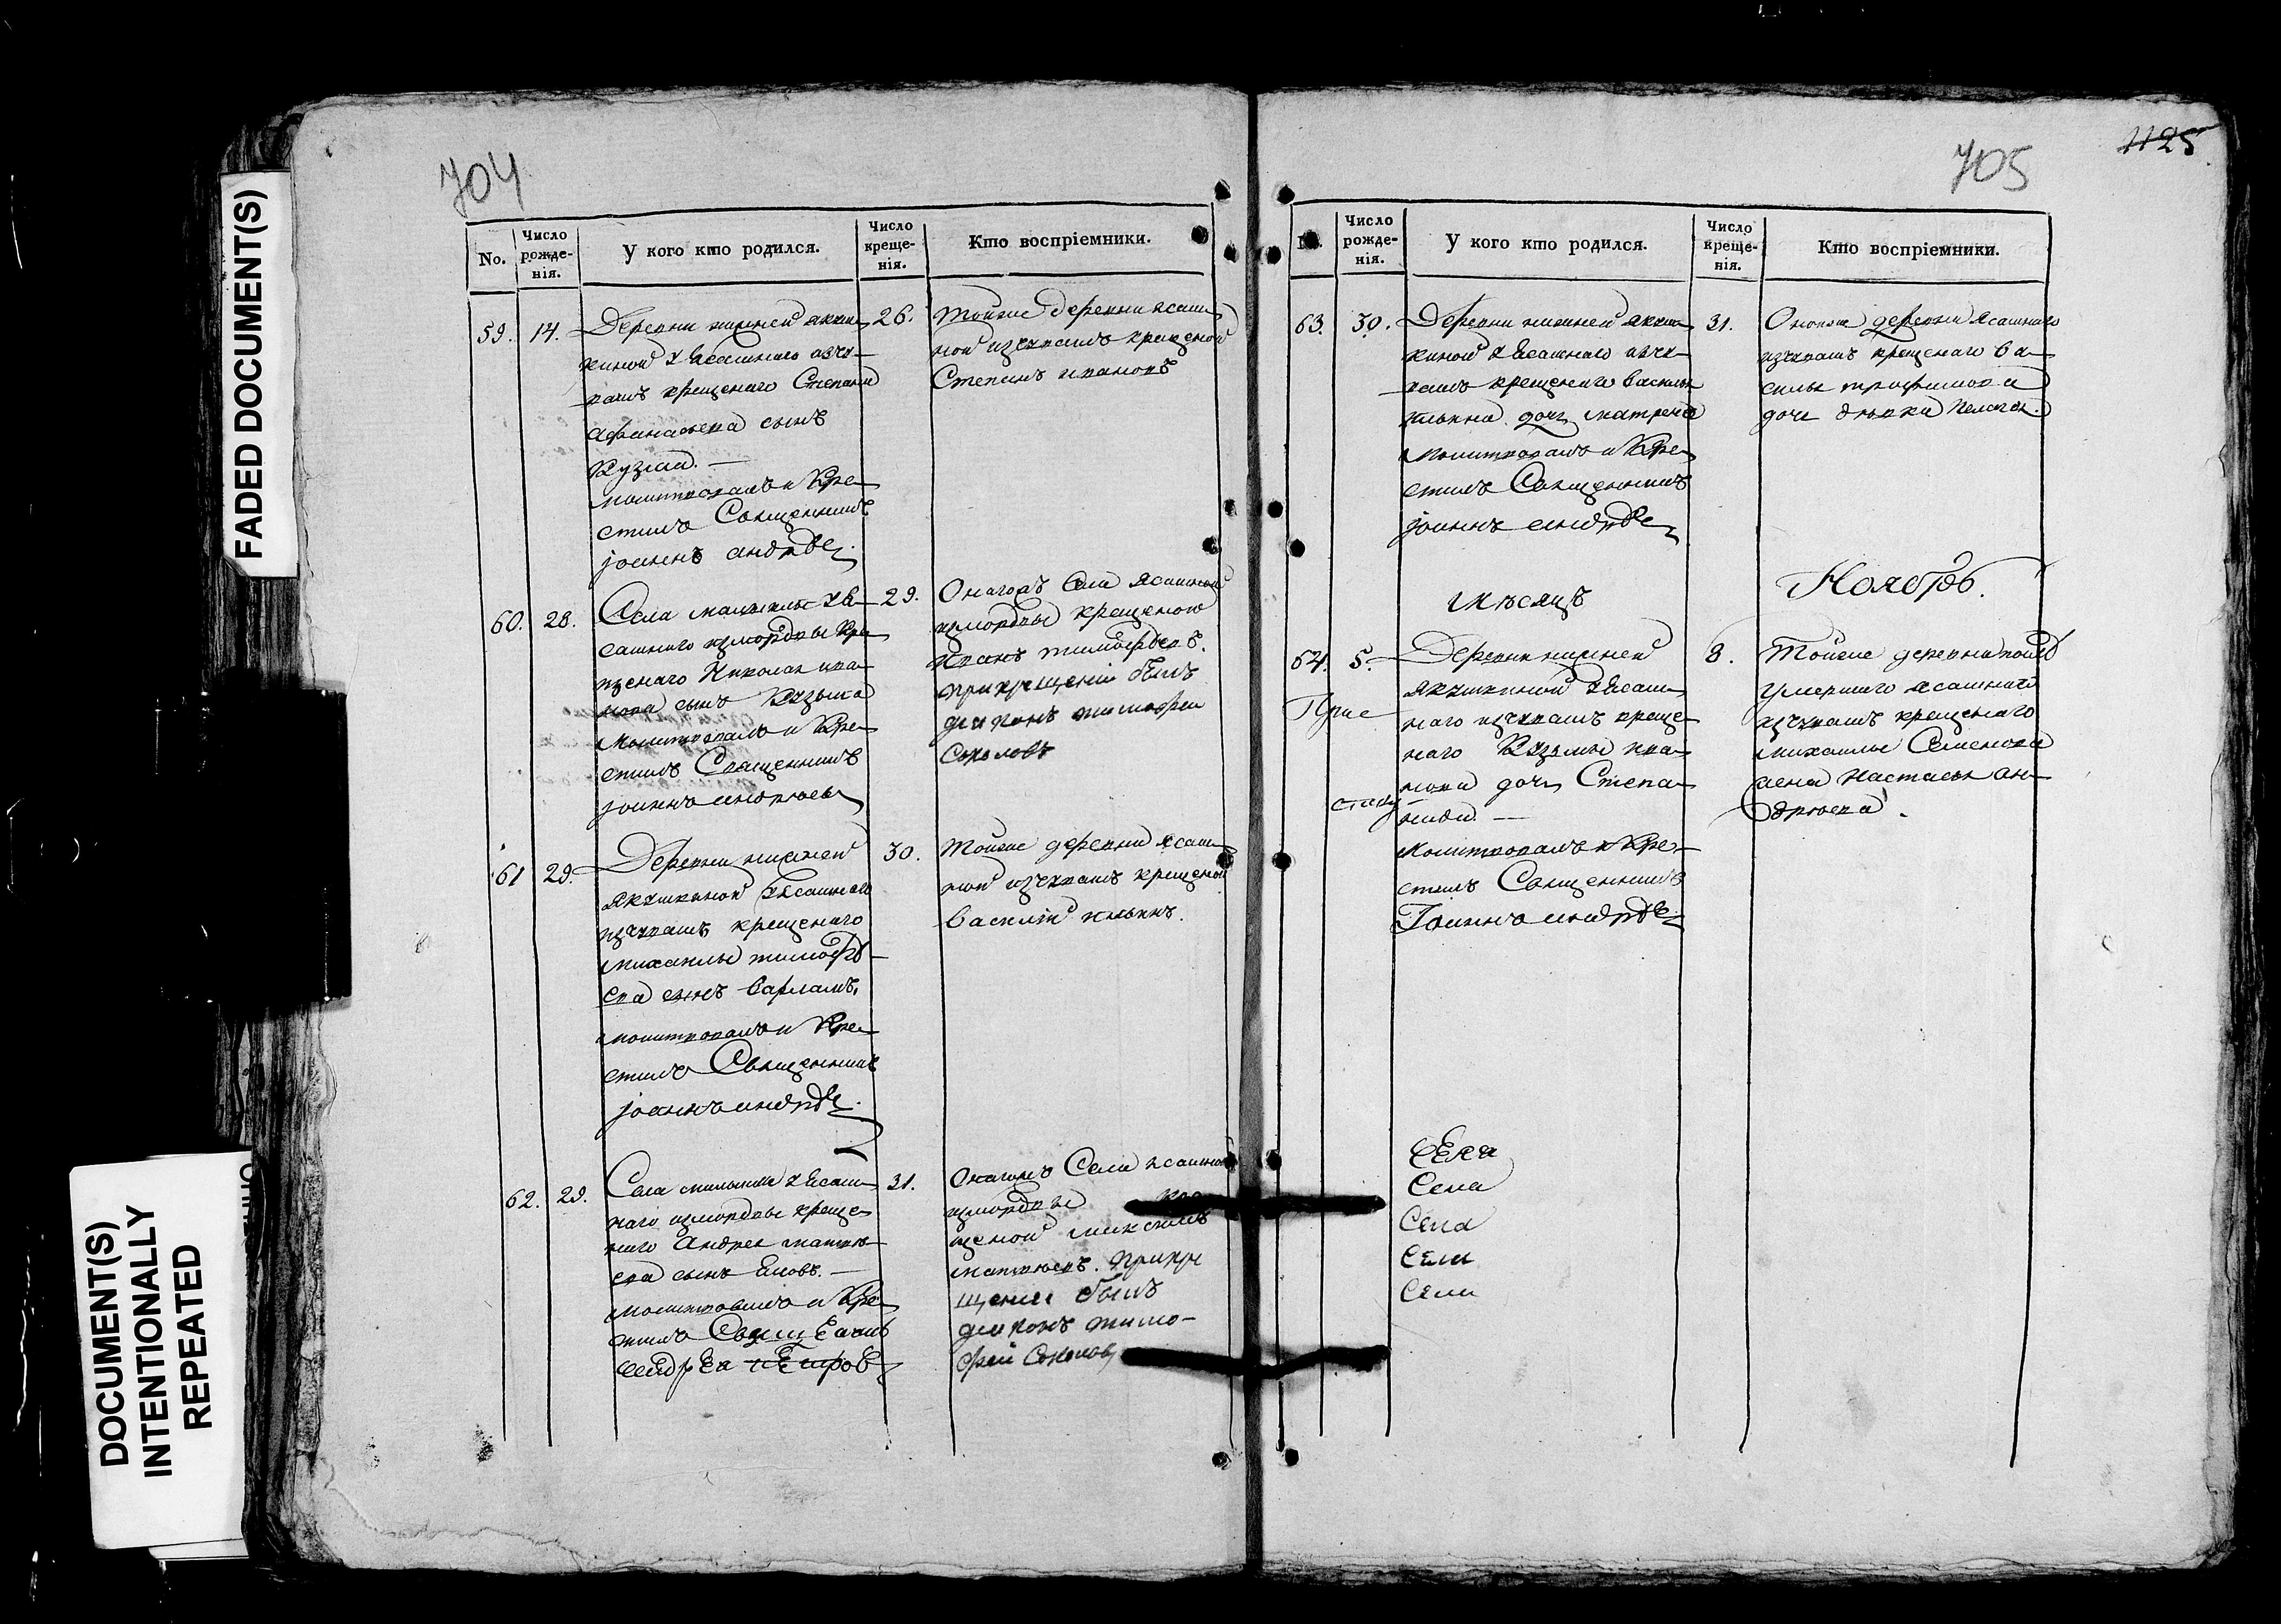 FADED DOCUMENT(S)
DOCUMENT(S)
INTENTIONALLY
REPEATED
704
No.
Число рожде-нія.
У кого кто родился.
Число креще-нія.
Кто воспріемники.
59. 14.
Деревни нижней якуш
киной у Ясашнаго изчу
вашъ крещенаго Степана
афанасьева сынъ
Кузма. —
молитвовалъ и Кре
стилъ Священникъ
јоаннъ андрѣе
26.
тойже деревни ясаш
ной изчувашъ крещеной
Степанъ ивановъ
60. 28.
Села малыклы у Я
сашнаго измордвы Кре
щенаго Николая ива
нова сынъ Кузьма
Молитвовалъ и Кре
стилъ Священникъ
јоаннъ андреевъ
29.
Онагожъ Села Ясашной
измордвы крещеной
Иванъ тимофѣевъ.
прикрещеніи былъ
диаконъ тимофеи
Соколовъ
61 29.
Деревни нижней
якушкиной у Ясашнаго
изчувашъ крещенаго
михаилы тимофѣ
ева сынъ варламъ.
молитвовалъ и Кре
стилъ Священникъ
јоаннъ андрѣе
30.
тойже деревни ясаш
ной изчувашъ крещеной
василій ильинъ.
62. 29.
Села малыклы у Ясаш
наго измордвы креще
наго Андрея матвѣ
ева сынъ Иовъ. —
молитвовалъ и Кре
стилъ
31.
Онагожъ Села ясашной
измордвы кре
щеной максимъ
матвѣевъ. прикре
щеніи былъ
диаконъ тимо-
фей Соколовъ
705
1125
No.
Число рожде-нія.
У кого кто родился.
Число креще-нія.
Кто воспріемники.
63. 30.
Деревни нижней якуш
киной у Ясашнаго изчу
вашъ крещенаго василья
ильина дочь матрена
молитвовалъ и Кре
стилъ Священникъ
јоаннъ андрѣе
31.
Оноиже деревни Ясашнаго
изчувашъ крещенаго ва
силья трофимова
дочь дѣвка Пелагея.
мѣсяцъ
Ноябрь.
64. 5.
Деревни нижней
якушкиной у Ясаш
наго изчувашъ креще
наго Кузьмы ива
нова дочь Степа
нида. —
Молитвовалъ и Кре
стилъ Священникъ
Іоаннъ андрѣе
Прис
8.
тойже деревни
умершаго ясашнаго
изчувашъ крещенаго
михаилы Семенова
жена настасья ан
дреева.
Села
Села
Села
Села
Села